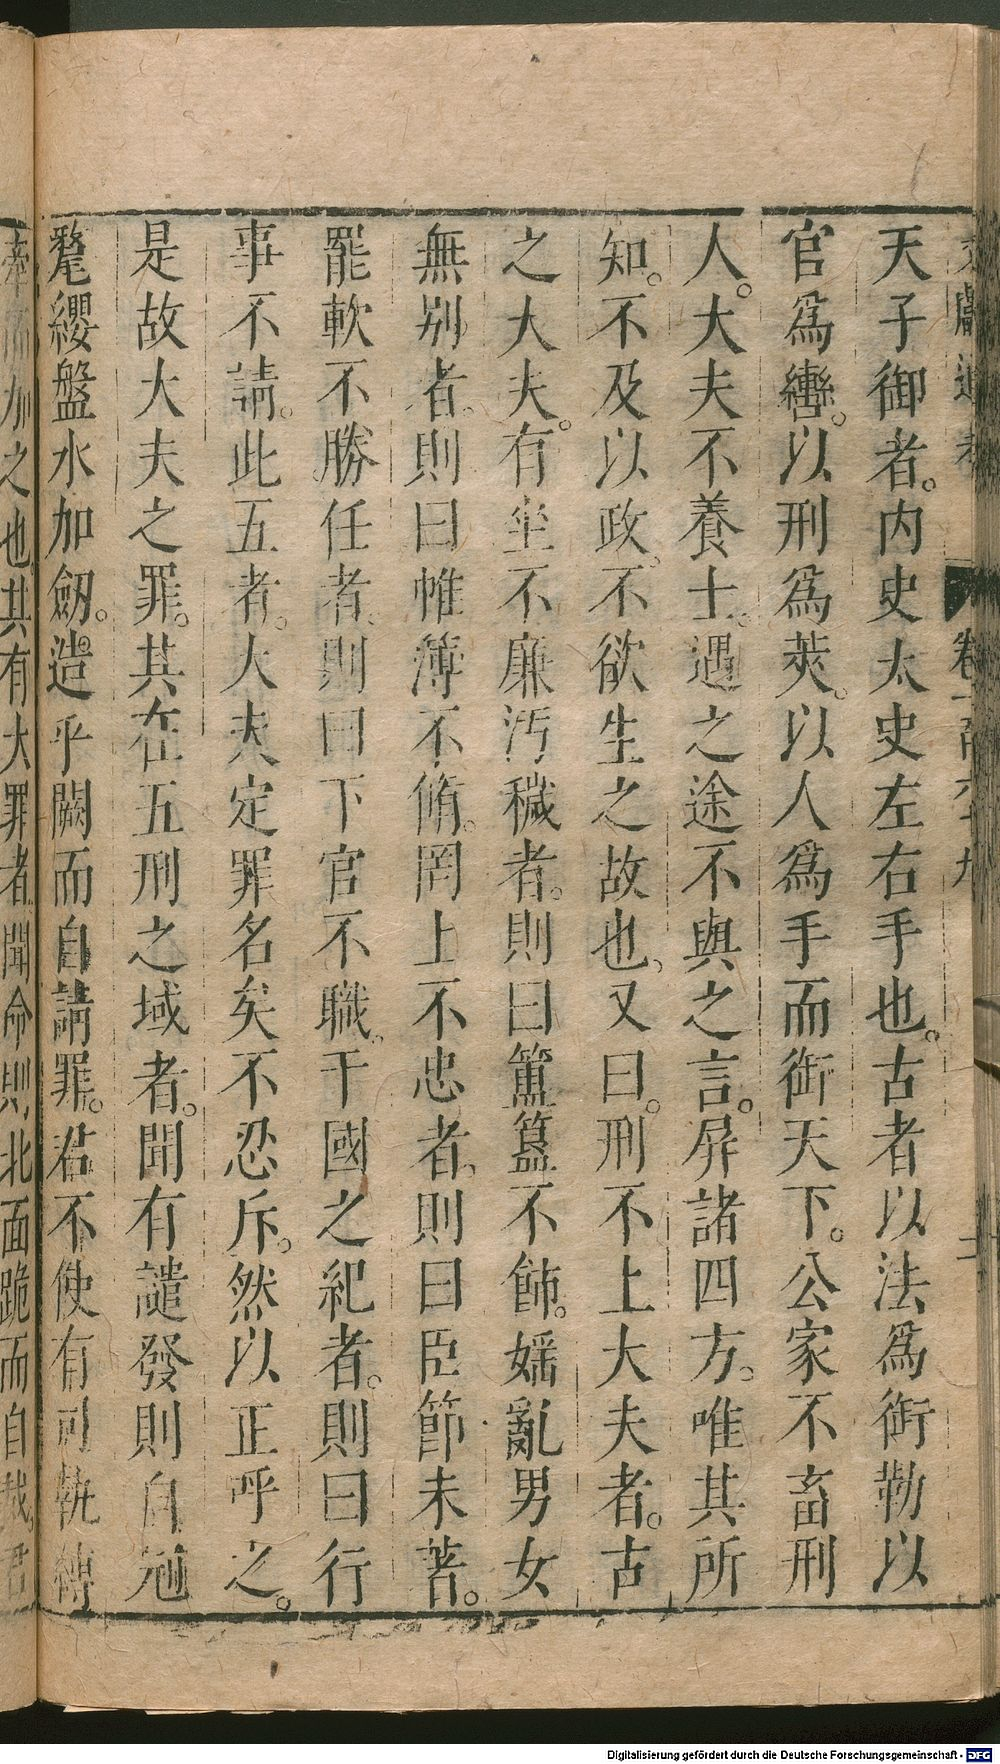 文獻通考 卷一百六十九 二
天子御者。内史太史左右手也。古者以法爲銜勒以
官爲轡。以刑爲筴。以人爲手而御天下。公家不畜刑
人。大夫不養士。遇之途不與之言。屏諸四方。唯其所
知。不及以政。不欲生之故也。又曰。刑不上大夫者。古
之大夫。有坐不廉汚穢者。則曰簠簋不飾。婬亂男女
無别者。則曰帷薄不脩。罔上不忠者。則曰臣節未著。
罷軟不勝任者。則曰下官不職。干國之紀者。則曰行
事不請。此五者。大夫定罪名矣不忍斥。然以正呼之。
是故大夫之罪。其在五刑之域者。聞有譴發則白冠
氂纓盤水加劒。造乎闕而自請罪。君不使有司執縛
牽而加之也其有大罪者聞命則北面跪而自裁。君
Digitalisierung gefördert durch die Deutsche Forschungsgemeinschaft - DFG